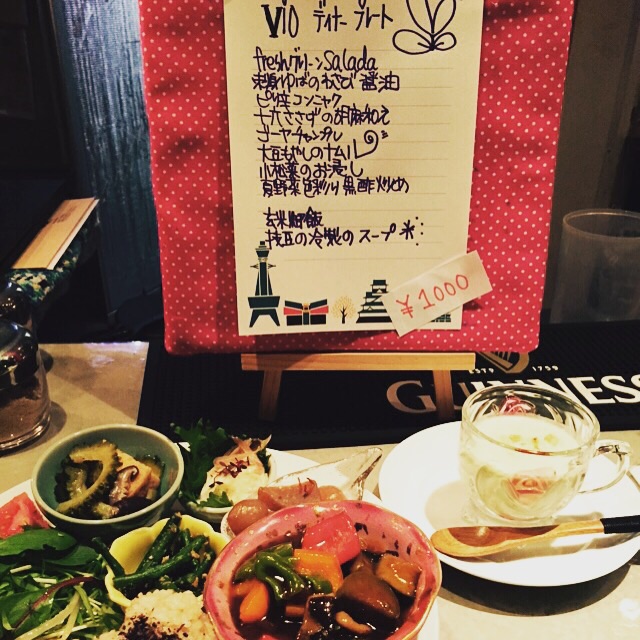 Vio ディナープレート
freshグリーンSalada
刺身ゆばのわさび醤油
ピリ辛コンニャク
十六ささげの胡麻和え
ゴーヤーチャンプル
大豆もやしのナムル
小松菜のお浸し
夏野菜 黒酢炒め
玄米御飯
枝豆の冷製のスープ
¥1000
1759
GUINNESS